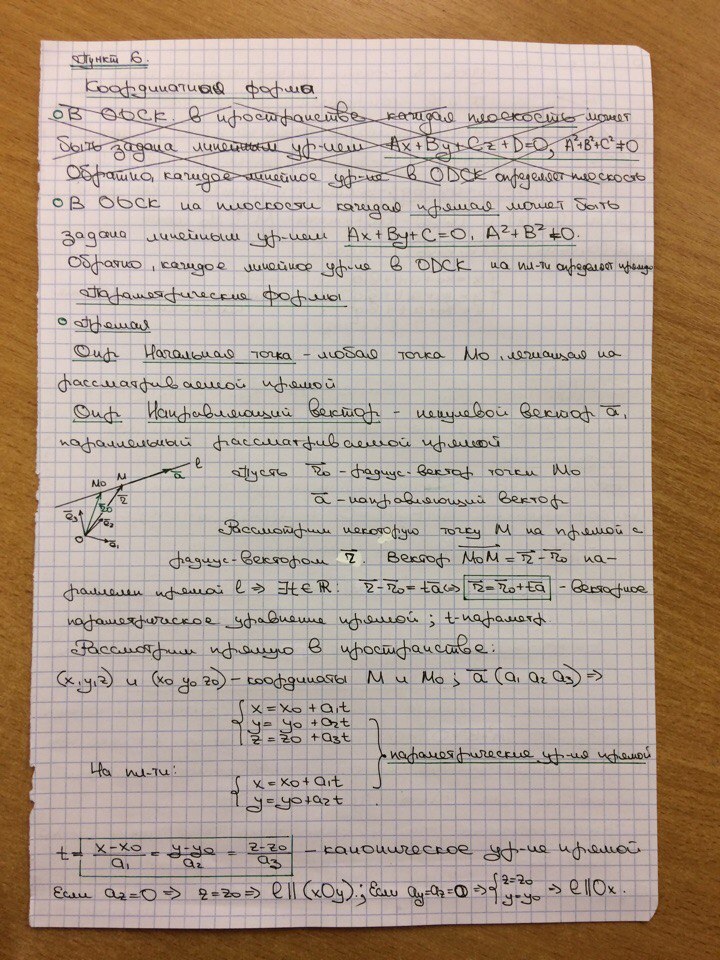 Пункт 6.
Координатная форма
В ОДСК в пространстве каждая плоскость может
быть задана линейным ур-нием Ax+By+Cz+D=0, A²+B²+C²≠0
Обратно, каждое линейное ур-ие в ОДСК определяет плоскость
В ОДСК на плоскости каждая прямая может быть
задана линейным ур-нием Ax+By+C=0, A²+B²≠0.
Обратно, каждое линейное ур-ие в ОДСК на пл-ти определяет прямую
Параметрические формы
Прямая
Опр Начальная точка - любая точка M₀, лежащая на
рассматриваемой прямой
Опр Направляющий вектор - ненулевой вектор a̅,
параллельный рассматриваемой прямой
M₀ M a̅ l
r̅₀ r̅
a̅₃ a̅₂
O a̅₁
Пусть r̅₀ - радиус-вектор точки M₀
a̅ - направляющий вектор
Рассмотрим некоторую точку M на прямой с
радиус-вектором r̅. Вектор M₀M = r̅ - r̅₀ па-
раллелен прямой l ⇒ ∃t∈ℝ: r̅-r̅₀=ta̅ ⇔ r̅=r̅₀+ta̅ - векторное
параметрическое уравнение прямой; t-параметр
Рассмотрим прямую в пространстве:
(x,y,z) и (x₀ y₀ z₀) - координаты M и M₀; a̅ (a₁ a₂ a₃) ⇒
x = x₀ + a₁t
y = y₀ + a₂t
z = z₀ + a₃t
параметрические ур-ие прямой
На пл-ти:
x = x₀ + a₁t
y = y₀ + a₂t
t = x-x₀/a₁ = y-y₀/a₂ = z-z₀/a₃ - каноническое ур-ие прямой
Если a_z=0 ⇒ z=z₀ ⇒ l || (xOy); Если a_y=a_z=0 ⇒ { z=z₀ y=y₀ ⇒ l || Ox.